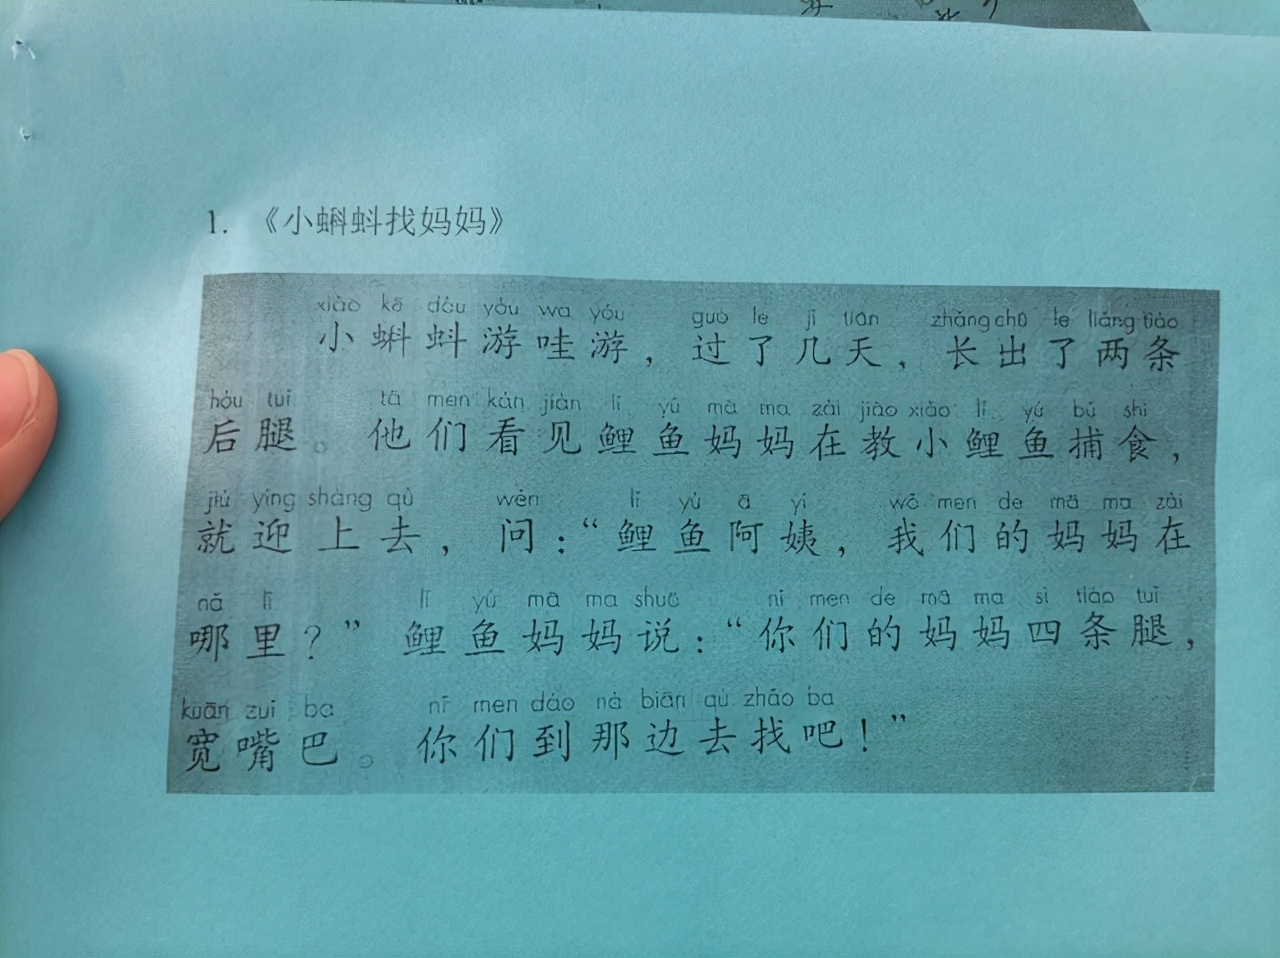 1. 《小蝌蚪找妈妈》
xiǎo kē dǒu yóu wa yóu guò le jǐ tiān zhǎng chū le liǎng tiáo
小蝌蚪游哇游，过了几天，长出了两条
hòu tuǐ tā men kàn jiàn lǐ yú mā ma zài jiāo xiǎo lǐ yú bǔ shí
后腿。他们看见鲤鱼妈妈在教小鲤鱼捕食，
jiù yíng shàng qù wèn lǐ yú ā yí wǒ men de mā ma zài
就迎上去，问：“鲤鱼阿姨，我们的妈妈在
nǎ lǐ lǐ yú mā ma shuō nǐ men de mā ma sì tiáo tuǐ
哪里？” 鲤鱼妈妈说：“你们的妈妈四条腿，
kuān zuǐ ba nǐ men dào nà biān qù zhǎo ba
宽嘴巴。你们到那边去找吧！”